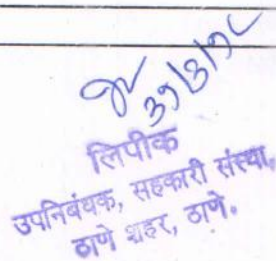 ३१/३/१८
लिपीक
उपनिबंधक, सहकारी संस्था,
ठाणे शहर, ठाणे.